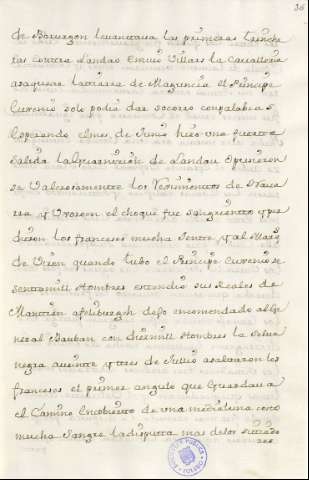 36
de Borurgon leuantaua las primeras trinche
ras contra Landao Envio Villars la Caualleria
asaquear la tierra de Maguncia el Principe
Eurenio solo podia dar socorro con palabras
Esperando el mes de Junio hiço una fuerte
salida la Guarnicion de Landau opusieron
se Valerosamente los Regimientos de Naua
rra, y el choque fue sangriento y per
dieron los franceses mucha Jente, y al Marq
de quando tubo el Principe Eurenio se
senta mill hombres extendio sus Reales de
Philisburgh dejo encomendado al Ge
neral Bauban con diez mill hombres la selua
negra a veinte y tres de Jullio asaltaron los
franceses el primer angulo que Guardaua
el Camino Encubierto de una media luna costo
mucha Sangre la disputta mas de los sittiado
res